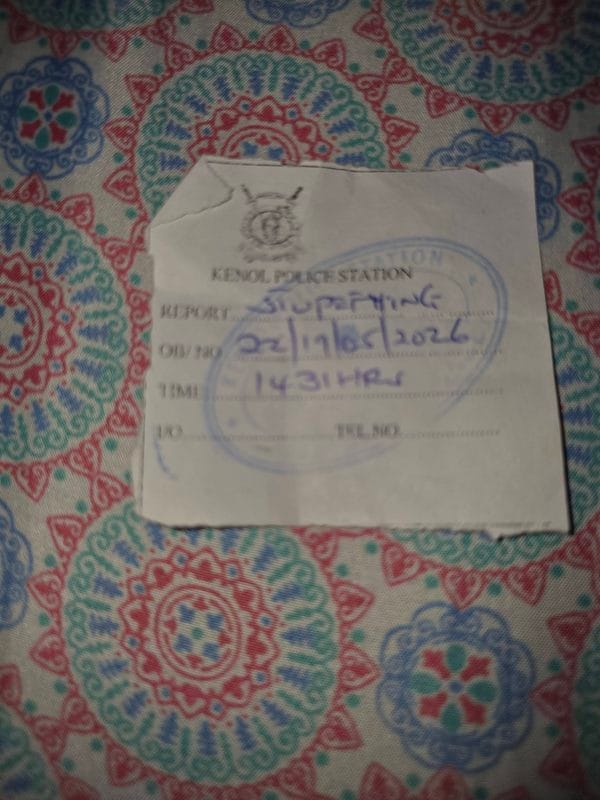 KENOL POLICE STATION
REPORT STUPEFYING
OB/ NO 22/19/05/2026
TIME 1431HRS
I/O TEL NO.
STATION